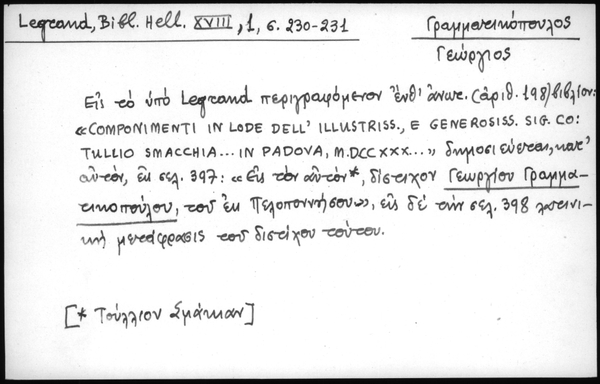 Legrand, Bibl. Hell. XVIII, 1, σ. 230-231
Γραμματικόπουλος
Γεώργιος
Εἰς τὸ ὑπὸ Legrand περιγραφόμενον ἐνθ' ἀνωτ. (ἀριθ. 198) βιβλίον:
«COMPONIMENTI IN LODE DELL' ILLUSTRISS., E GENEROSISS. SIG. CO:
TULLIO SMACCHIA... IN PADOVA, M.DCCXXX...» δημοσιεύεται, κατ'
αὐτόν, ἐν σελ. 397: «Εἰς τὸν αὐτὸν*, δίστιχον Γεωργίου Γραμμα-
τικοπούλου, τοῦ ἐκ Πελοποννήσου», εἰς δὲ τὴν σελ. 398 λατινι-
κὴ μετάφρασις τοῦ διστίχου τούτου.
[* Τούλλιον Σμάκιαν]